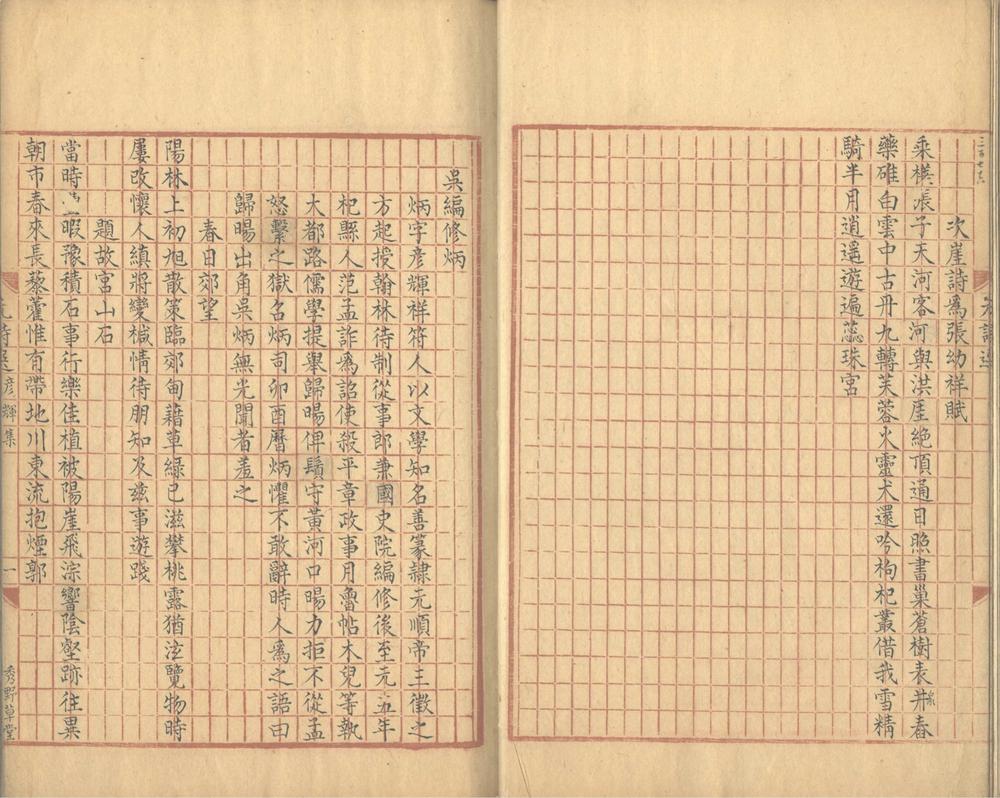 次崖詩爲張幼祥賦
乘槎張子天河客河與洪崖絶頂通日照書巢蒼樹表井春
藥碓白雲中古丹九轉芙蓉火靈犬還吟枸杞叢借我雪精
騎半月逍遥遊遍蕊珠宮
吳編修炳
炳字彦輝祥符人以文學知名善篆隷元順帝三徵之
方起授翰林待制從事郎兼國史院編修後至元五年
杞縣人范孟詐爲詔使殺平章政事月魯帖木兒等執
大都路儒學提舉歸暘俾守黃河口暘力拒不從孟
怒繫之獄召炳司卯酉曆炳懼不敢辭時人爲之語曰
歸暘出角吳炳無光聞者羞之
春日郊望
陽林上初旭散策臨郊甸藉草綠已滋攀桃露猶泫覽物時
屢改懷人縝將變椷情待朋知及兹事遊踐
題故宮山石
當時暇豫積石事行樂佳植被陽崖飛淙響陰壑跡往異
朝市春來長藜藿惟有帶地川東流抱煙郭
元詩選 彦輝集 一 秀野草堂